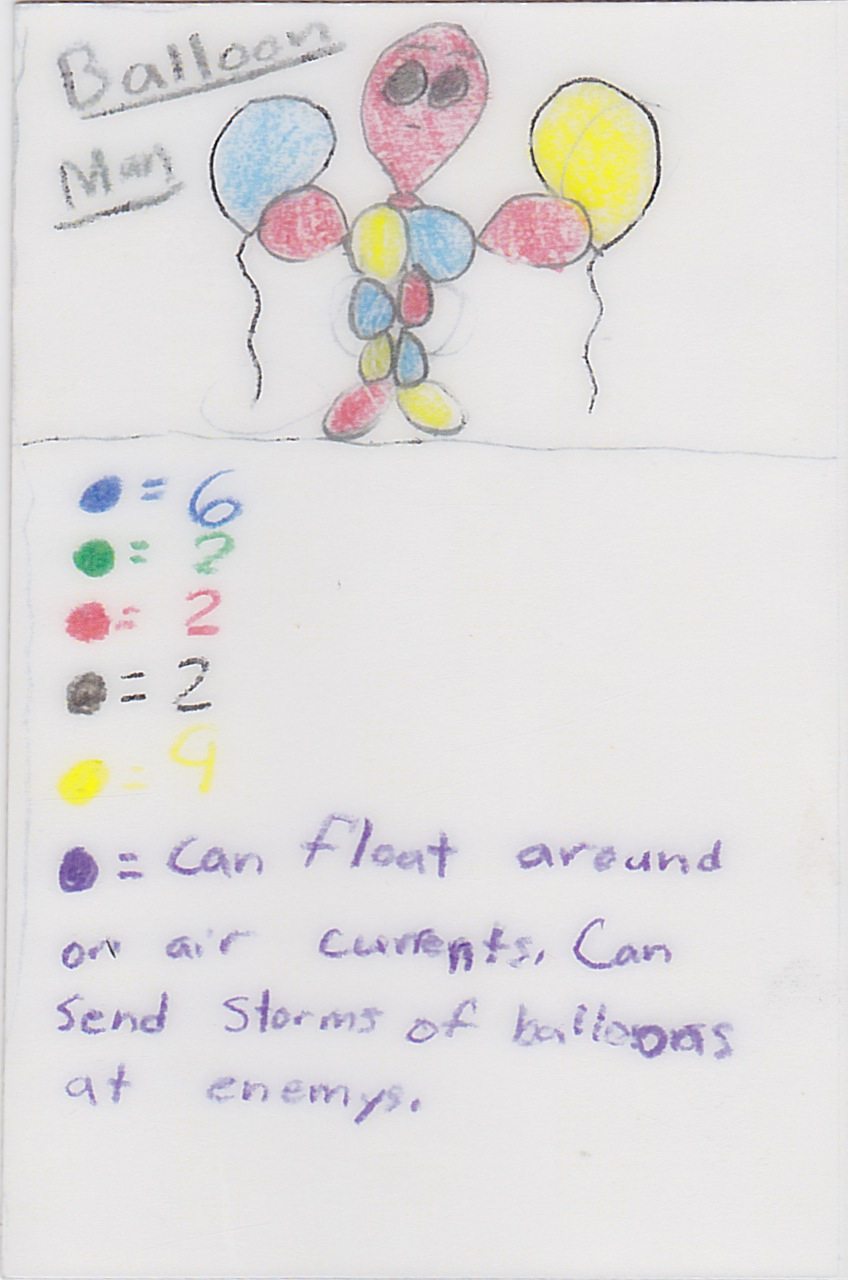 Balloon
Man
= 6
= 2
= 2
= 2
= 9
= Can float around
on air currents. Can
Send Storms of balloons
at enemys.